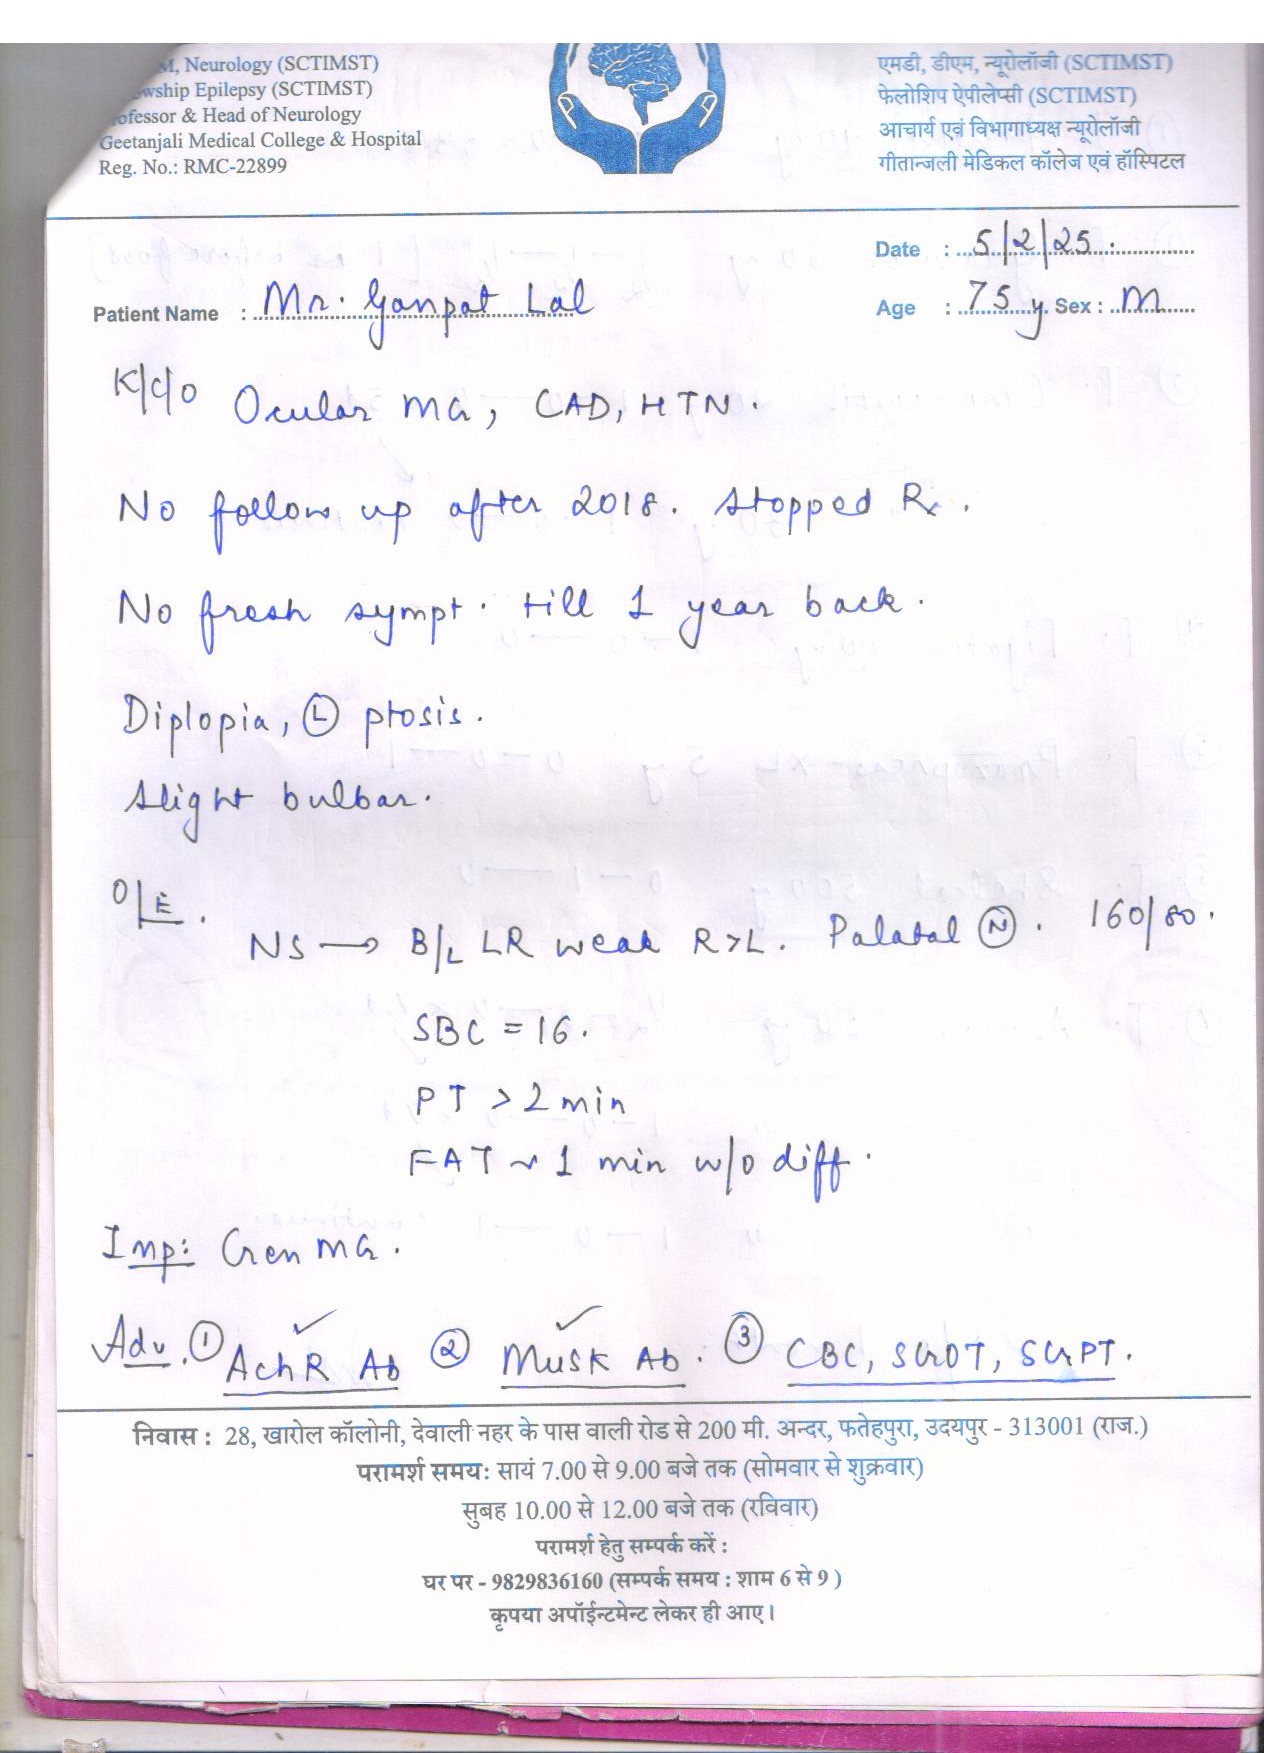 M, Neurology (SCTIMST)
wship Epilepsy (SCTIMST)
ofessor & Head of Neurology
Geetanjali Medical College & Hospital
Reg. No.: RMC-22899
एमडी, डीएम, न्यूरोलॉजी (SCTIMST)
फेलोशिप ऐपीलेप्सी (SCTIMST)
आचार्य एवं विभागाध्यक्ष न्यूरोलॉजी
गीतान्जली मेडिकल कॉलेज एवं हॉस्पिटल
Date : 5/2/25.
Patient Name : Mr. Ganpat Lal
Age : 75 y Sex : M
K/C/O Ocular MG, CAD, HTN.
No follow up after 2018. stopped Rx.
No fresh sympt. till 1 year back.
Diplopia, (L) ptosis.
slight bulbar.
O/E. NS → B/L LR weak R>L. Palatal (N). 160/80.
SBC = 16.
PT > 2 min
FAT ~ 1 min w/o diff.
Imp: Gen MG.
Adv. ① AchR Ab ✓ ② MUSK Ab. ✓ ③ CBC, SGOT, SGPT.
निवास : 28, खारोल कॉलोनी, देवाली नहर के पास वाली रोड से 200 मी. अन्दर, फतेहपुरा, उदयपुर - 313001 (राज.)
परामर्श समय: सायं 7.00 से 9.00 बजे तक (सोमवार से शुक्रवार)
सुबह 10.00 से 12.00 बजे तक (रविवार)
परामर्श हेतु सम्पर्क करें :
घर पर - 9829836160 (सम्पर्क समय : शाम 6 से 9 )
कृपया अपॉईन्टमेन्ट लेकर ही आए।